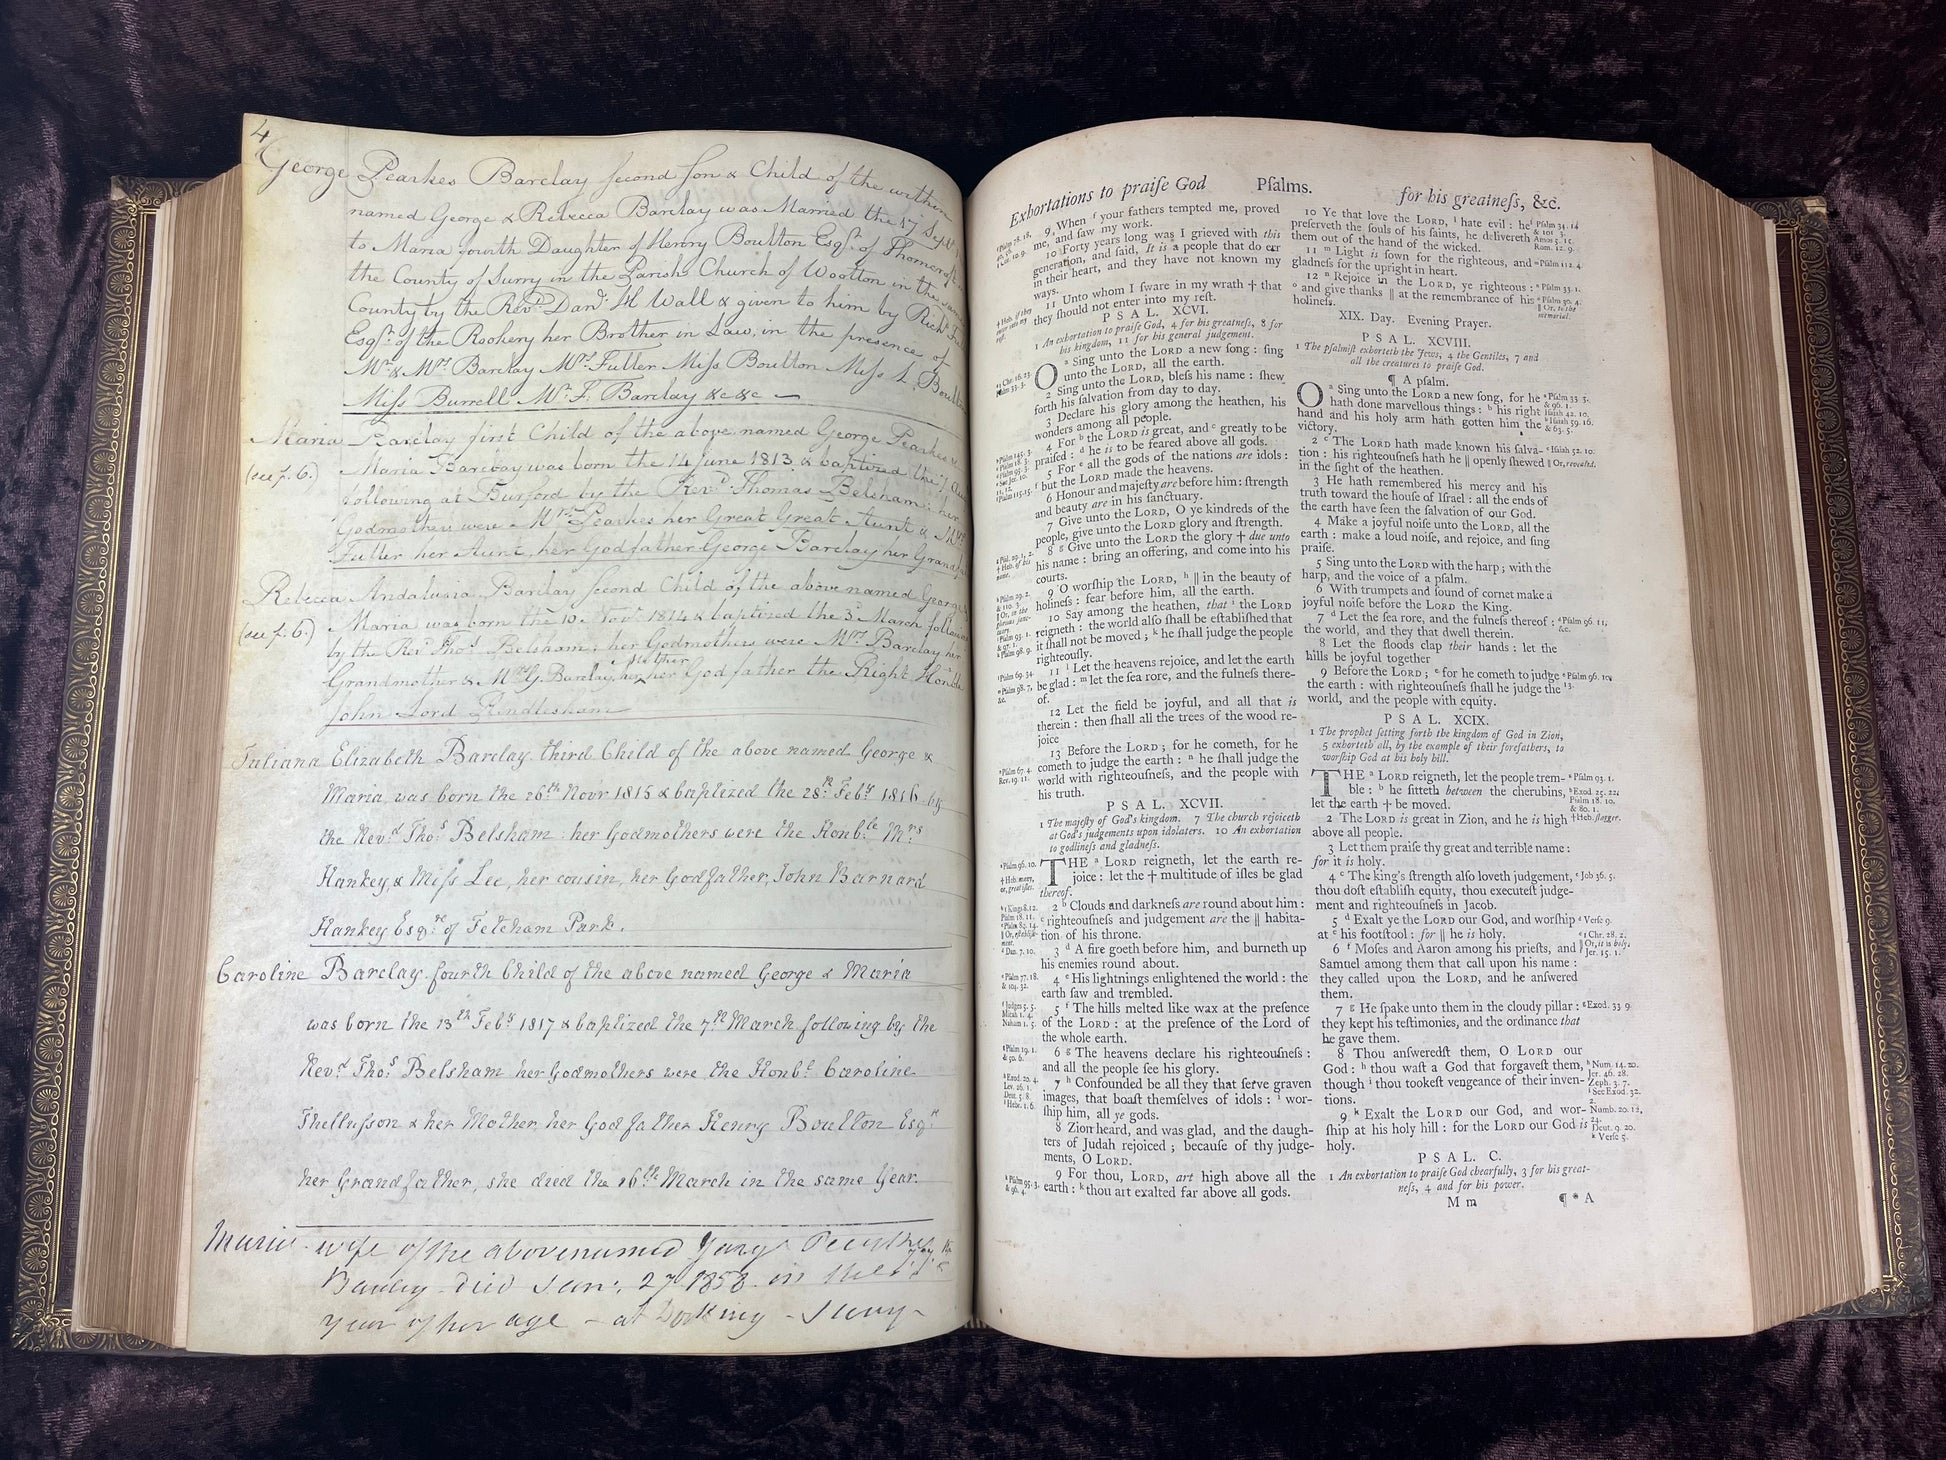 4
George Pearkes Barclay second Son & Child of the within
named George & Rebecca Barclay was Married the 17 Sept
to Maria fourth Daughter of Henry Boulton Esqr. of Thorncroft
the County of Surry in the Parish Church of Wootton in the same
County by the Revd. Danl. H Wall & given to him by Richd.
Esqr. of the Rookery her Brother in Law, in the presence of
Mr. & Mrs. Barclay Mrs. Fuller Miss Boulton Miss L Boulton
Miss Burrell Mr. F. Barclay &c &c
Maria Barclay first Child of the above named George Pearkes &
(see p. 6.) Maria Barclay was born the 14 June 1813 & baptized the
following at Burford by the Revd. Thomas Belsham: her
Godmothers were Mrs. Pearkes her Great Great Aunt & Mrs.
Fuller her Aunt, her Godfather George Barclay her
Rebecca Andalusia Barclay second Child of the above named George &
(see p. 6.) Maria was born the 10 Novr. 1814 & baptized the 3d March
by the Revd Thos Belsham; her Godmothers were Mrs. Barclay her
Grandmother & Mrs. G. Barclay, her Mother her Godfather the Right Honble
John Lord Rendlesham
Juliana Elizabeth Barclay third Child of the above named George &
Maria was born the 26th Novr 1815 & baptized the 28th Feby 1816 by
the Revd Thos Belsham: her Godmothers were the Honble Mrs
Hankey & Miss Lee, her cousin, her Godfather, John Barnard
Hankey Esqre of Fetcham Park.
Caroline Barclay fourth Child of the above named George & Maria
was born the 13th Feby 1817 & baptized the 7th March following by the
Revd Thos Belsham her Godmothers were the Honbl Caroline
Thellusson & her Mother, her Godfather Henry Boulton Esqr
her Grandfather, she died the 16th March in the same Year.
Maria wife of the abovenamed George
Barclay died Jany. 27 1858 in the
year of her age - at Dorking - Surry -
Exhortations to praiſe God Pſalms. for his greatneſs, &c.
9, When f your fathers tempted me, proved
me, and ſaw my work.
10 Forty years long was I grieved with this
generation, and ſaid, It is a people that do err
in their heart, and they have not known my
ways.
11 Unto whom I ſware in my wrath † that
they ſhould not enter into my reſt.
PSAL. XCVI.
1 An exhortation to praiſe God, 4 for his greatneſs, 8 for
his kingdom, 11 for his general judgement.
O a Sing unto the LORD a new ſong : ſing
unto the LORD, all the earth.
2 Sing unto the LORD, bleſs his name : ſhew
forth his ſalvation from day to day.
3 Declare his glory among the heathen, his
wonders among all people.
4 For b the LORD is great, and c greatly to be
praiſed : d he is to be feared above all gods.
5 For e all the gods of the nations are idols :
f but the LORD made the heavens.
6 Honour and majeſty are before him : ſtrength
and beauty are in his ſanctuary.
7 Give unto the LORD, O ye kindreds of the
people, give unto the LORD glory and ſtrength.
8 g Give unto the LORD the glory † due unto
his name : bring an offering, and come into his
courts.
9 O worſhip the LORD, h || in the beauty of
holineſs : fear before him, all the earth.
10 Say among the heathen, that i the LORD
reigneth : the world alſo ſhall be eſtabliſhed that
it ſhall not be moved ; k he ſhall judge the people
righteouſly.
11 l Let the heavens rejoice, and let the earth
be glad : m let the ſea rore, and the fulneſs there-
of.
12 Let the field be joyful, and all that is
therein : then ſhall all the trees of the wood re-
joice
13 Before the LORD ; for he cometh, for he
cometh to judge the earth : n he ſhall judge the
world with righteouſneſs, and the people with
his truth.
PSAL. XCVII.
1 The majeſty of God's kingdom. 7 The church rejoiceth
at God's judgements upon idolaters. 10 An exhortation
to godlineſs and gladneſs.
THE a LORD reigneth, let the earth re-
joice : let the † multitude of iſles be glad
thereof.
2 b Clouds and darkneſs are round about him :
c righteouſneſs and judgement are the || habita-
tion of his throne.
3 d A fire goeth before him, and burneth up
his enemies round about.
4 e His lightnings enlightened the world : the
earth ſaw and trembled.
5 f The hills melted like wax at the preſence
of the LORD : at the preſence of the Lord of
the whole earth.
6 g The heavens declare his righteouſneſs :
and all the people ſee his glory.
7 h Confounded be all they that ſerve graven
images, that boaſt themſelves of idols : i wor-
ſhip him, all ye gods.
8 Zion heard, and was glad, and the daugh-
ters of Judah rejoiced ; becauſe of thy judge-
ments, O LORD.
9 For thou, LORD, art high above all the
earth : k thou art exalted far above all gods.
10 Ye that love the LORD, l hate evil : he
preſerveth the ſouls of his ſaints, he delivereth
them out of the hand of the wicked.
11 m Light is ſown for the righteous, and
gladneſs for the upright in heart.
12 n Rejoice in the LORD, ye righteous :
o and give thanks || at the remembrance of his
holineſs.
XIX. Day. Evening Prayer.
PSAL. XCVIII.
1 The pſalmiſt exhorteth the Jews, 4 the Gentiles, 7 and
all the creatures to praiſe God.
¶ A pſalm.
O a Sing unto the LORD a new ſong, for he
hath done marvellous things : b his right
hand and his holy arm hath gotten him the
victory.
2 c The LORD hath made known his ſalva-
tion : his righteouſneſs hath he || openly ſhewed
in the ſight of the heathen.
3 He hath remembered his mercy and his
truth toward the houſe of Iſrael : all the ends of
the earth have ſeen the ſalvation of our God.
4 Make a joyful noiſe unto the LORD, all the
earth : make a loud noiſe, and rejoice, and ſing
praiſe.
5 Sing unto the LORD with the harp ; with the
harp, and the voice of a pſalm.
6 With trumpets and ſound of cornet make a
joyful noiſe before the LORD the King.
7 d Let the ſea rore, and the fulneſs thereof :
the world, and they that dwell therein.
8 Let the floods clap their hands : let the
hills be joyful together
9 Before the LORD ; e for he cometh to judge
the earth : with righteouſneſs ſhall he judge the
world, and the people with equity.
PSAL. XCIX.
1 The prophet ſetting forth the kingdom of God in Zion,
5 exhorteth all, by the example of their forefathers, to
worſhip God at his holy hill.
THE a LORD reigneth, let the people trem-
ble : b he ſitteth between the cherubins,
let the earth † be moved.
2 The LORD is great in Zion, and he is high
above all people.
3 Let them praiſe thy great and terrible name :
for it is holy.
4 c The king's ſtrength alſo loveth judgement,
thou doſt eſtabliſh equity, thou executeſt judge-
ment and righteouſneſs in Jacob.
5 d Exalt ye the LORD our God, and worſhip
at e his footſtool : for || he is holy.
6 f Moſes and Aaron among his prieſts, and
Samuel among them that call upon his name :
they called upon the LORD, and he anſwered
them.
7 g He ſpake unto them in the cloudy pillar :
they kept his teſtimonies, and the ordinance that
he gave them.
8 Thou anſweredſt them, O LORD our
God : h thou waſt a God that forgaveſt them,
though i thou tookeſt vengeance of their inven-
tions.
9 k Exalt the LORD our God, and wor-
ſhip at his holy hill : for the LORD our God is
holy.
PSAL. C.
1 An exhortation to praiſe God chearfully, 3 for his great-
neſs, 4 and for his power.
M m ¶ * A